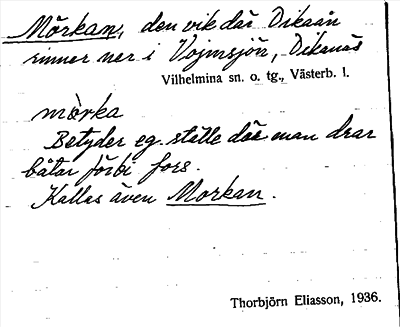 Mörkan, den vik där Dikaån
rinner ner i Vojmsjön, Dikanäs
Vilhelmina sn. o. tg., Västerb. l.
mòrka
Betyder eg. ställe där man drar
båtar förbi fors.
Kallas även Morkan.
Thorbjörn Eliasson, 1936.